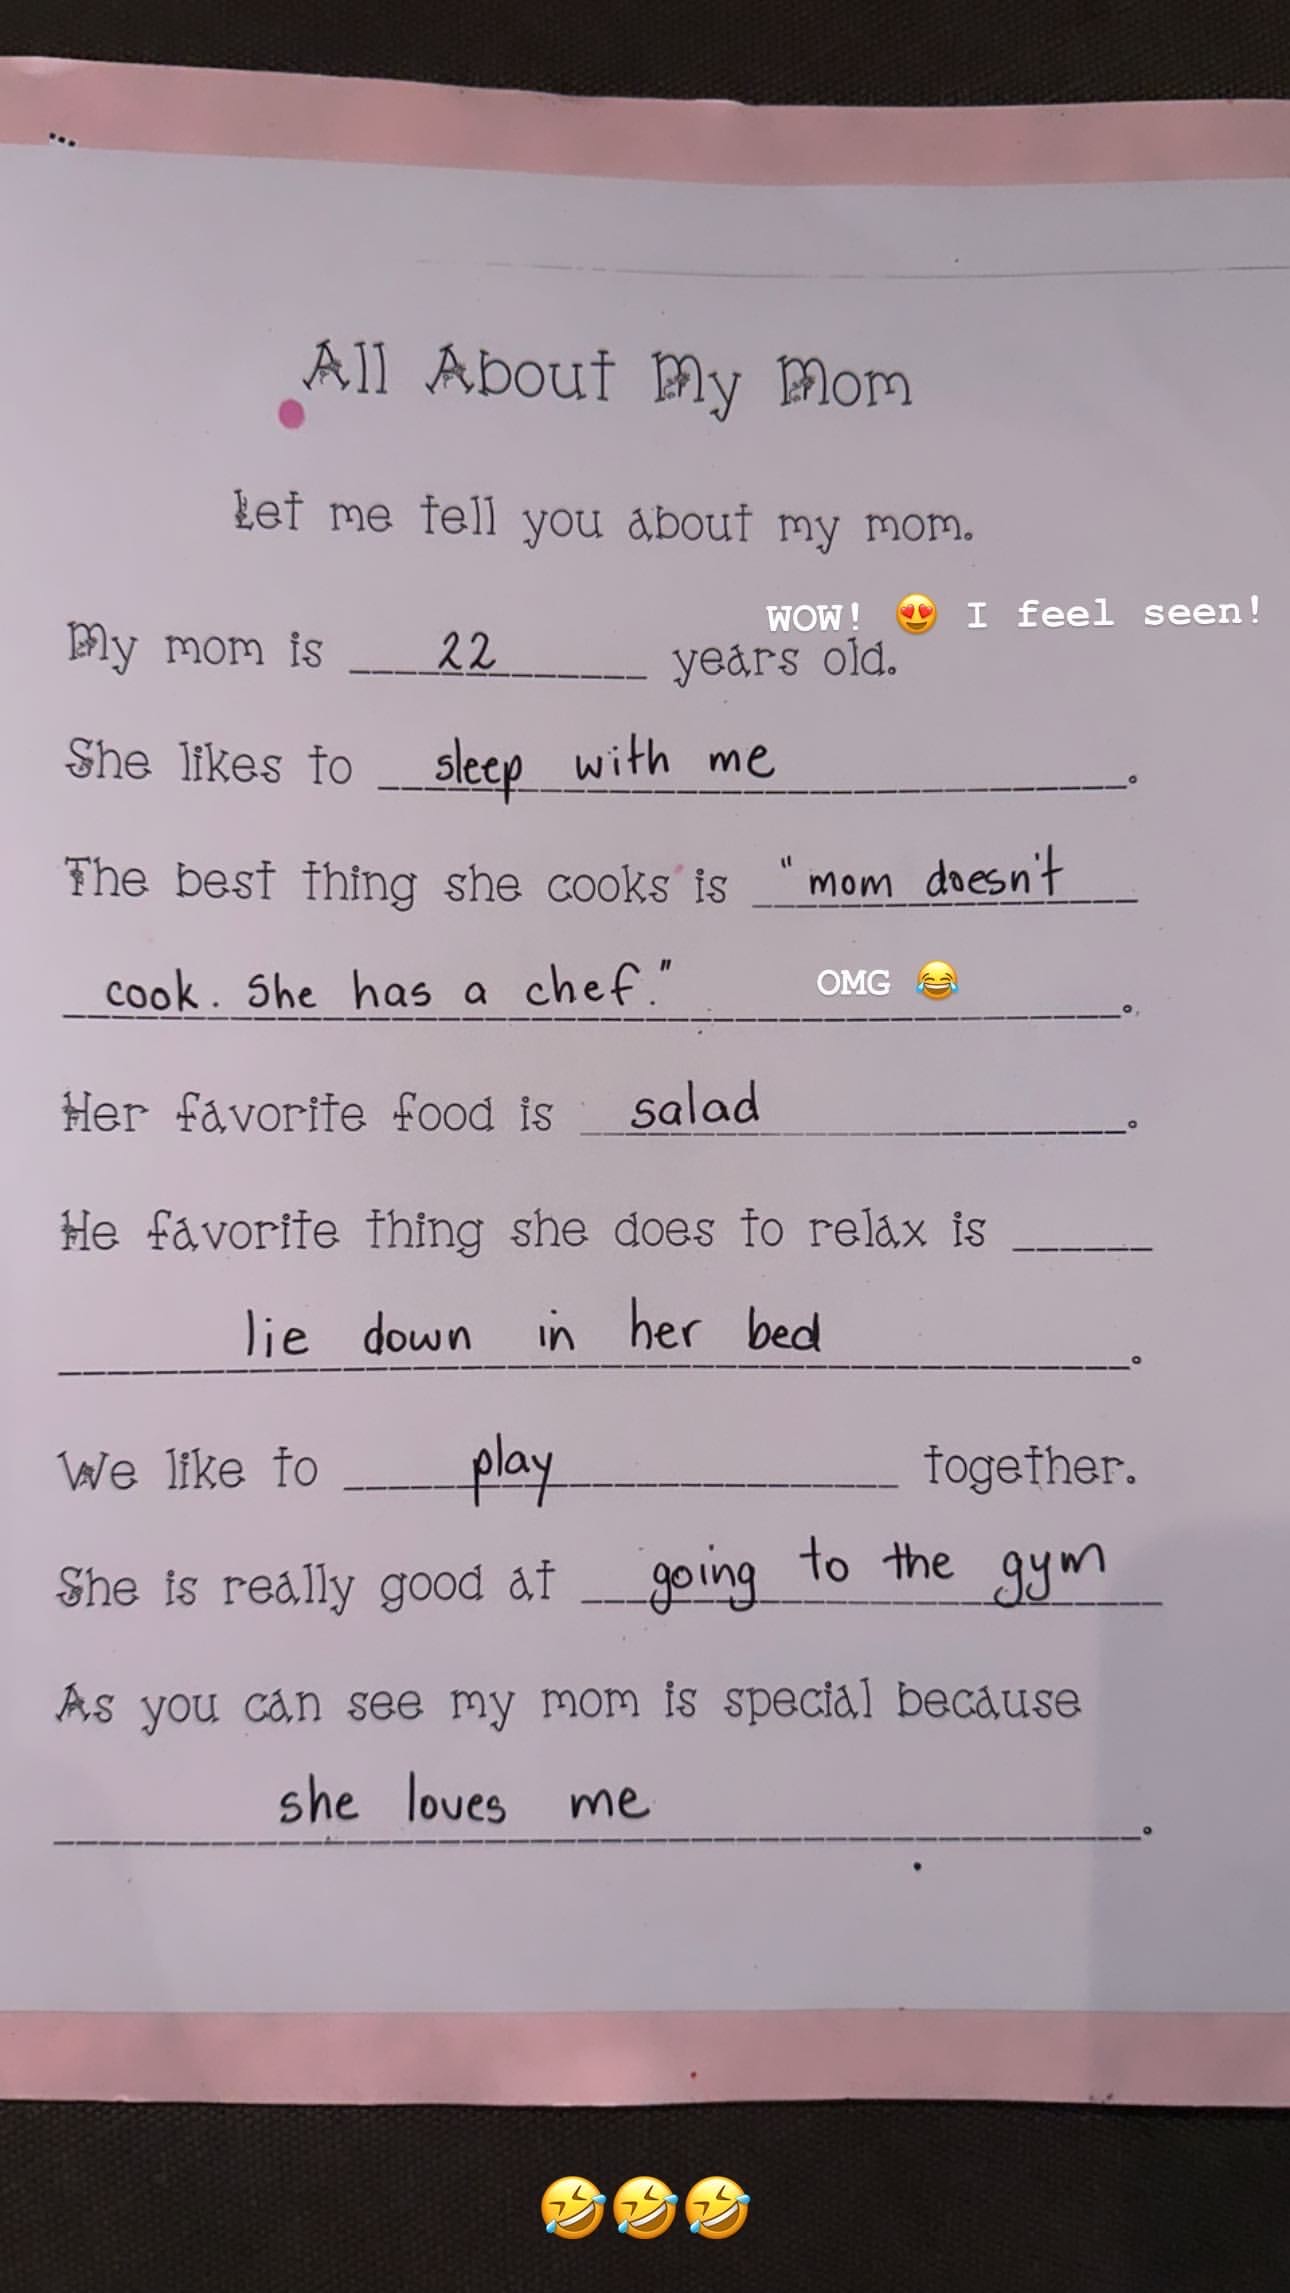 All About My Mom
Let me tell you about my mom.
WOW! 😍 I feel seen!
My mom is 22 years old.
She likes to sleep with me.
The best thing she cooks is "mom doesn't
cook. She has a chef."
OMG 😂
Her favorite food is salad.
He favorite thing she does to relax is
lie down in her bed.
We like to play together.
She is really good at going to the gym
As you can see my mom is special because
she loves me.
🤣🤣🤣